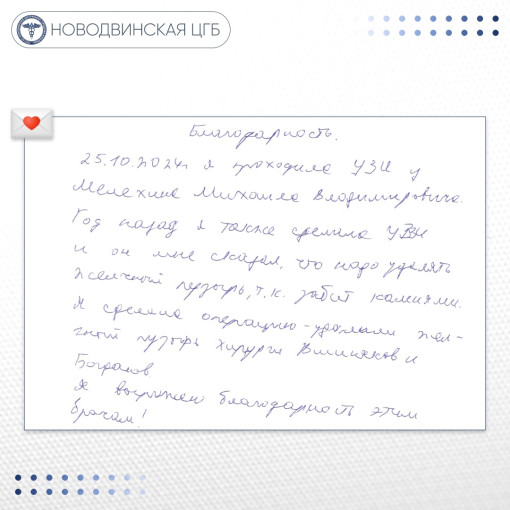 НОВОДВИНСКАЯ ЦГБ
Благодарность.
25.10.2024г я проходила УЗИ у
Мелехина Михаила Владимировича.
Год назад я также сделала УЗИ
и он мне сказал, что надо удалять
желчный пузырь, т.к. забит камнями.
Я сделала операцию - удалили жел-
чный пузырь хирурги и
Я выражаю благодарность этим
врачам!